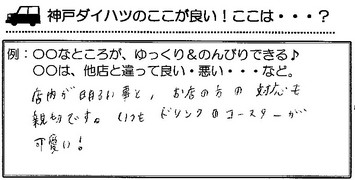 神戸ダイハツのここが良い！ここは・・・？
例：○○なところが、ゆっくり＆のんびりできる♪
○○は、他店と違って良い・悪い・・・など。
店内が明るい事と、お店の方の対応も
親切です。いつもドリンクのコースターが
可愛い！